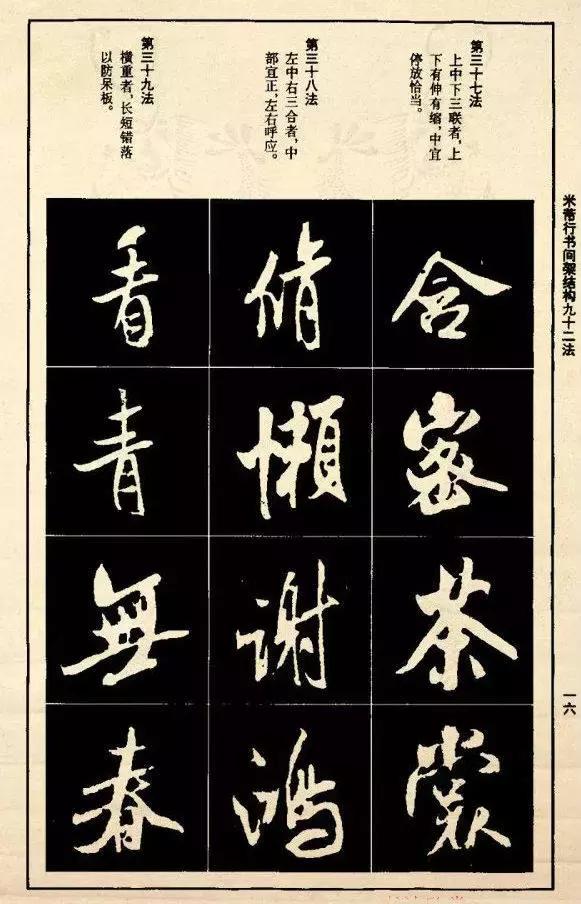 米芾行书间架结构九十二法
一六
第三十七法
上中下三联者，上
下有伸有缩，中宜
停放恰当。
第三十八法
左中右三合者，中
部宜正，左右呼应。
第三十九法
横重者，长短错落
以防呆板。
含密茶裳
脩懶謝鴻
看青無春